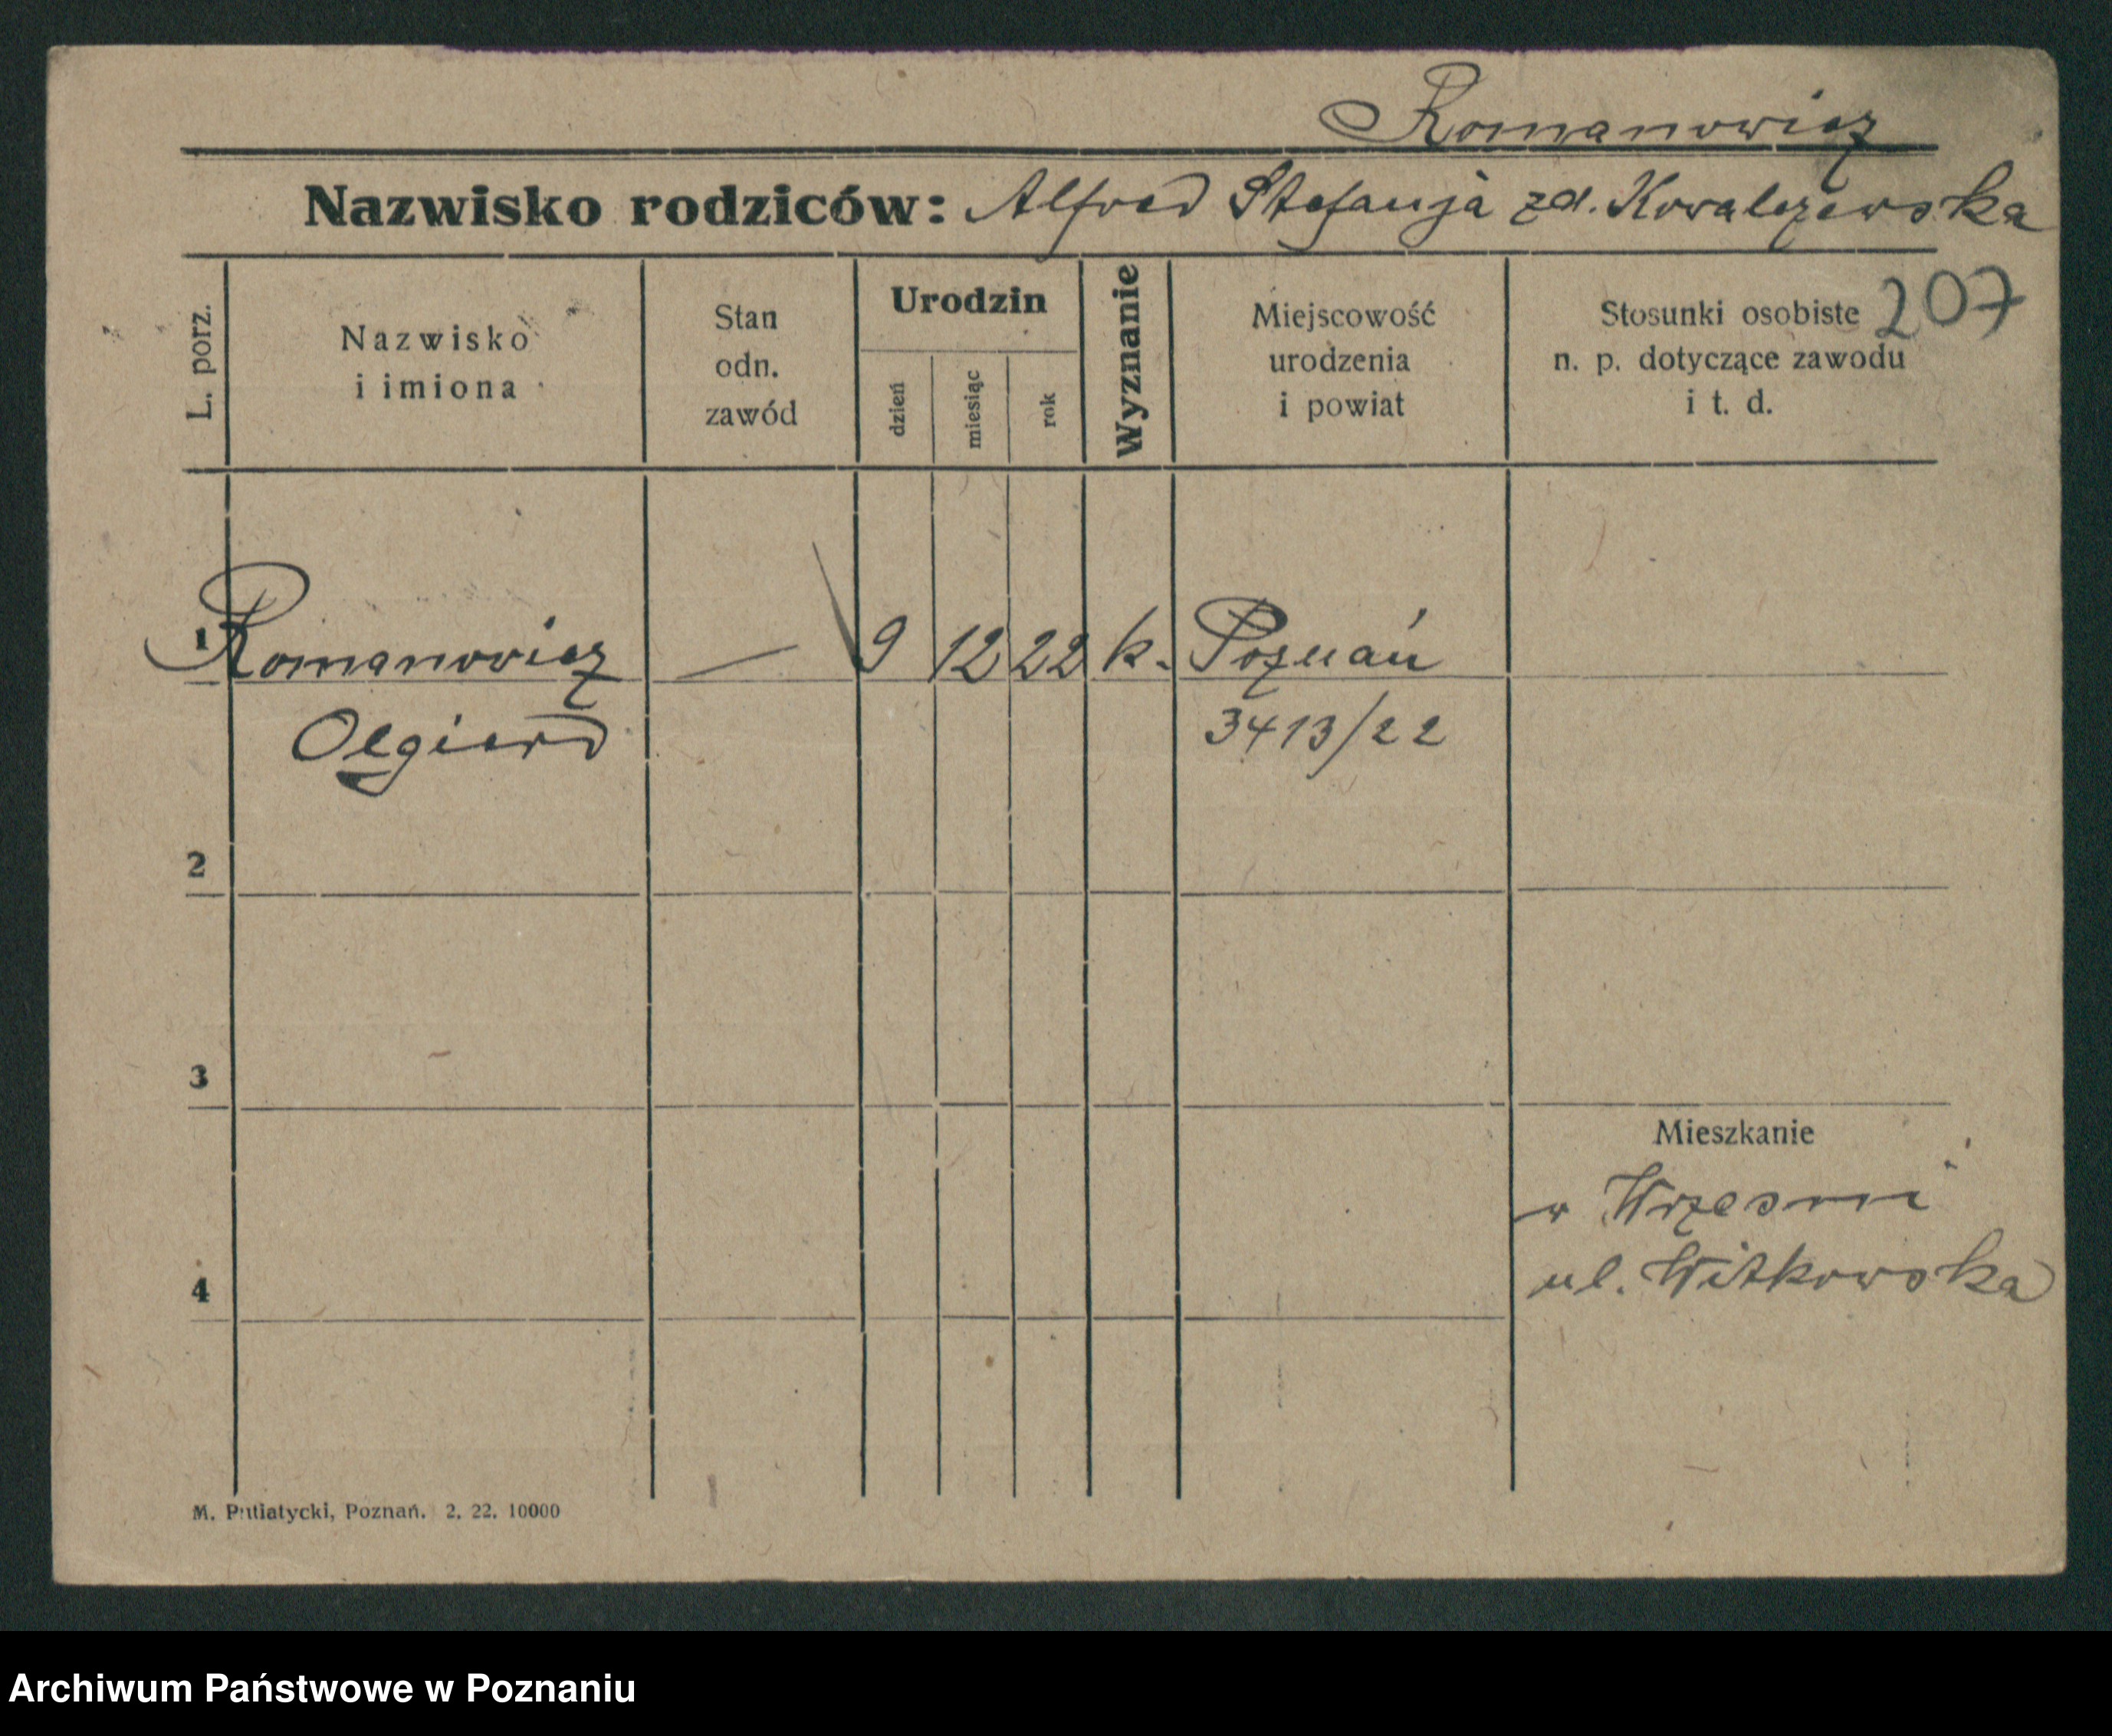 Romanowicz
Nazwisko rodziców: Alfred Stefanja zd. Kowalczewska
207
L. porz.
Nazwisko
i imiona
Stan
odn.
zawód
Urodzin
dzień
miesiąc
rok
Wyznanie
Miejscowość
urodzenia
i powiat
Stosunki osobiste
n. p. dotyczące zawodu
i t. d.
1 Romanowicz — 9 12 22 k. Poznań
Olgierd 3413/22
2
3
Mieszkanie
w Wrześni
ul. Witkowska
4
M. Putiatycki, Poznań. 2. 22. 10000
Archiwum Państwowe w Poznaniu